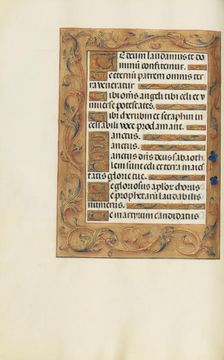 Te deum laudamus te do
minū confitemur.
Te eternū patrem omnis ter
ra veneratur
Tibi om̄s angeli tibi celi et v
niverse potestates.
Tibi cherubin et seraphin in
cessabili voce proclamant.
Sanctus.
Sanctus.
Sanctus dn̄s deus sabaoth
Pleni sunt celi et terra maies
tatis glorie tue.
Te gloriosus aplor̄ chorus
Te prophetarū laudabilis
numerus.
Te martyrum candidatus